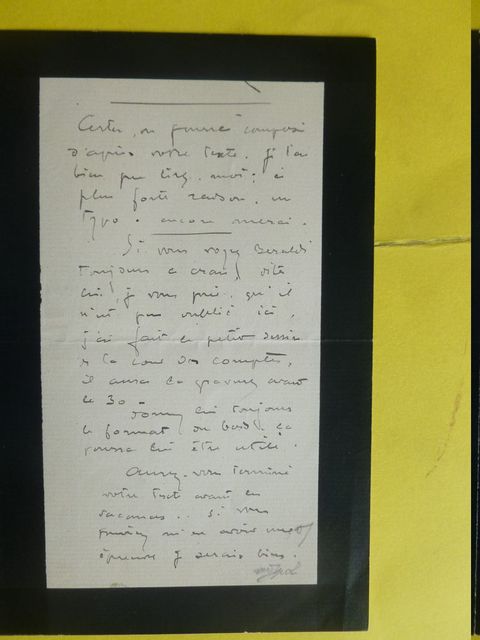 Certes, on pourra composer
d'après votre texte. Je l'ai
bien pu lire, moi ; à
plus forte raison, un
typo. encore merci.
Si vous voyez Beraldi
toujours à cran, dites
lui, je vous prie, qu'il
n'est pas oublié ici,
j'ai fait le petit dessin
de la cour des comptes,
il aura la gravure avant
le 30 -
Donnez lui toujours
le format du bas, ça
pourra lui être utile.
Aurez-vous terminé
votre texte avant les
vacances.. si vous
pouviez m'en avoir
épreuve je serais bien.